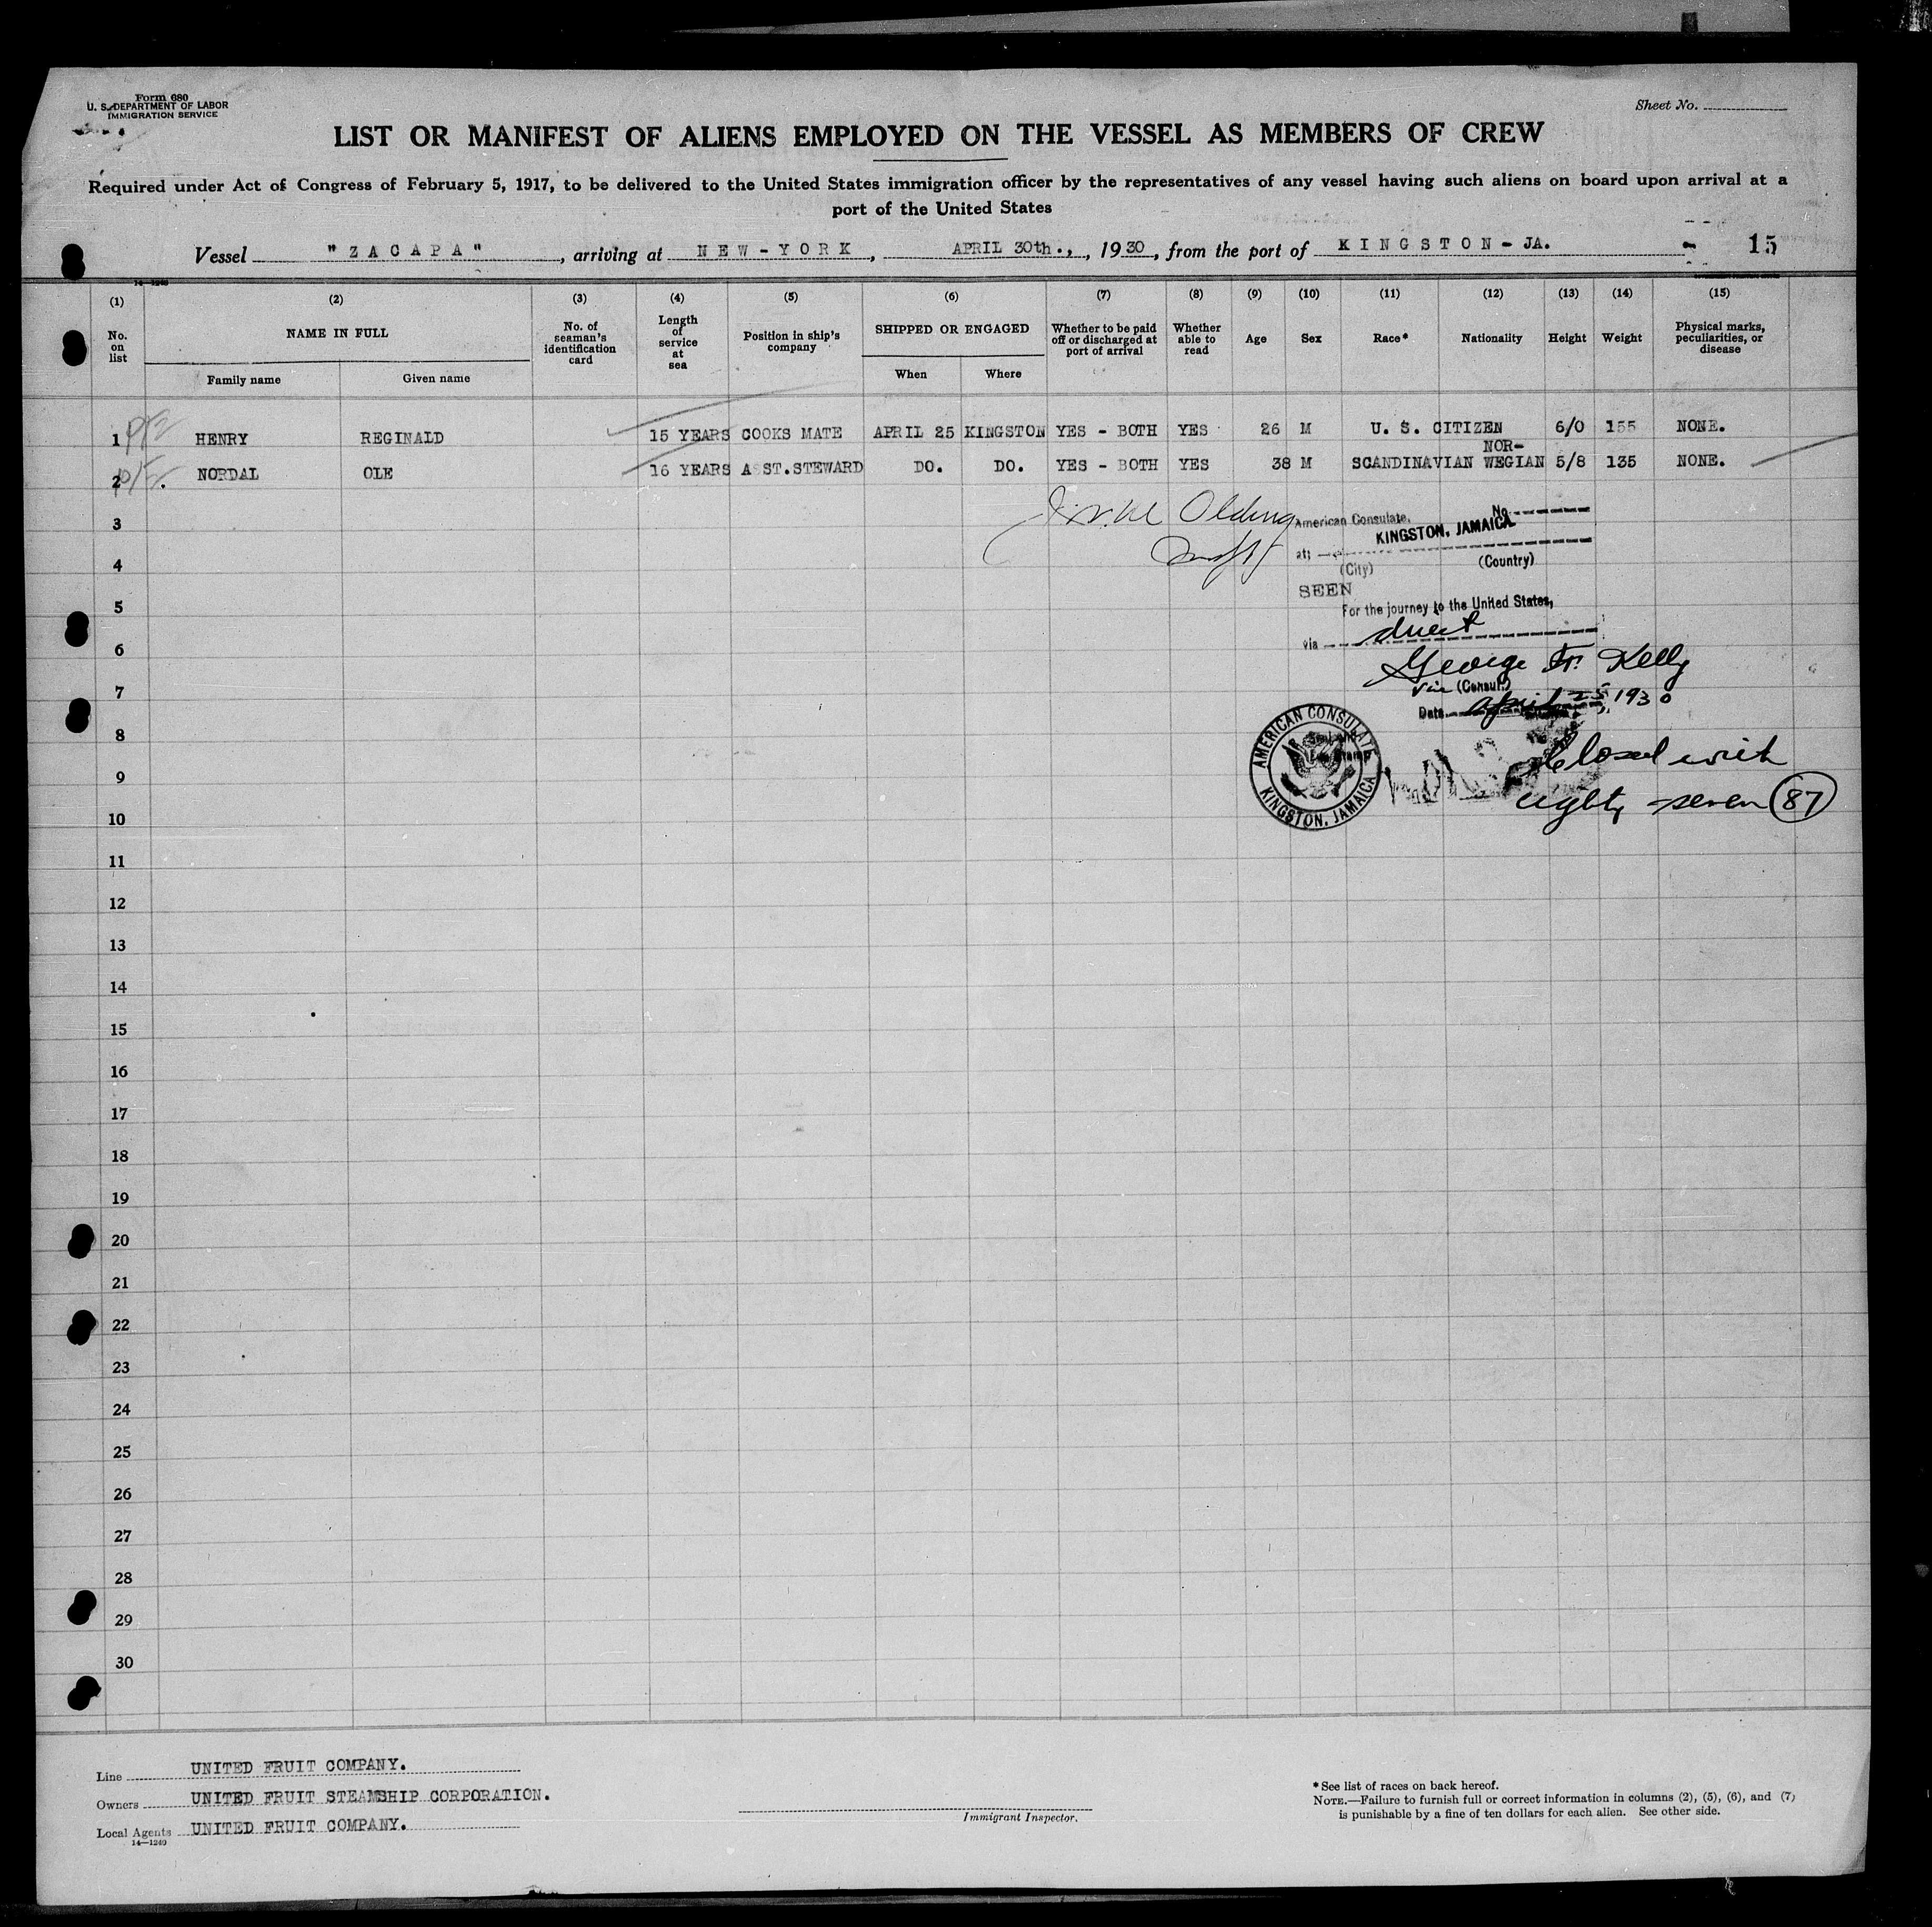 Form 680
U. S. DEPARTMENT OF LABOR
IMMIGRATION SERVICE
Sheet No.
LIST OR MANIFEST OF ALIENS EMPLOYED ON THE VESSEL AS MEMBERS OF CREW
Required under Act of Congress of February 5, 1917, to be delivered to the United States immigration officer by the representatives of any vessel having such aliens on board upon arrival at a
port of the United States
Vessel "ZACAPA", arriving at NEW-YORK, APRIL 30th., , 1930, from the port of KINGSTON-JA. - 15
14-1240
(1) (2) (3) (4) (5) (6) (7) (8) (9) (10) (11) (12) (13) (14) (15)
No. on list
NAME IN FULL
Family name
Given name
No. of seaman's identification card
Length of service at sea
Position in ship's company
SHIPPED OR ENGAGED
When
Where
Whether to be paid off or discharged at port of arrival
Whether able to read
Age
Sex
Race*
Nationality
Height
Weight
Physical marks, peculiarities, or disease
1 HENRY REGINALD 15 YEARS COOKS MATE APRIL 25 KINGSTON YES - BOTH YES 26 M U. S. CITIZEN 6/0 155 NONE.
NOR-
2 NORDAL OLE 16 YEARS A ST.STEWARD DO. DO. YES - BOTH YES 38 M SCANDINAVIAN WEGIAN 5/8 135 NONE.
3
4
5
6
7
8
9
10
11
12
13
14
15
16
17
18
19
20
21
22
23
24
25
26
27
28
29
30
Olding
American Consulate, No.
KINGSTON, JAMAICA
at;
(City) (Country)
SEEN
For the journey to the United States,
via direct
George F. Kelly
Vice (Consul.)
Date April 25, 1930
AMERICAN CONSULATE
KINGSTON, JAMAICA
Closed with
eighty seven (87)
Line UNITED FRUIT COMPANY.
Owners UNITED FRUIT STEAMSHIP CORPORATION.
Local Agents UNITED FRUIT COMPANY.
14-1240
Immigrant Inspector.
*See list of races on back hereof.
NOTE.—Failure to furnish full or correct information in columns (2), (5), (6), and (7)
is punishable by a fine of ten dollars for each alien. See other side.